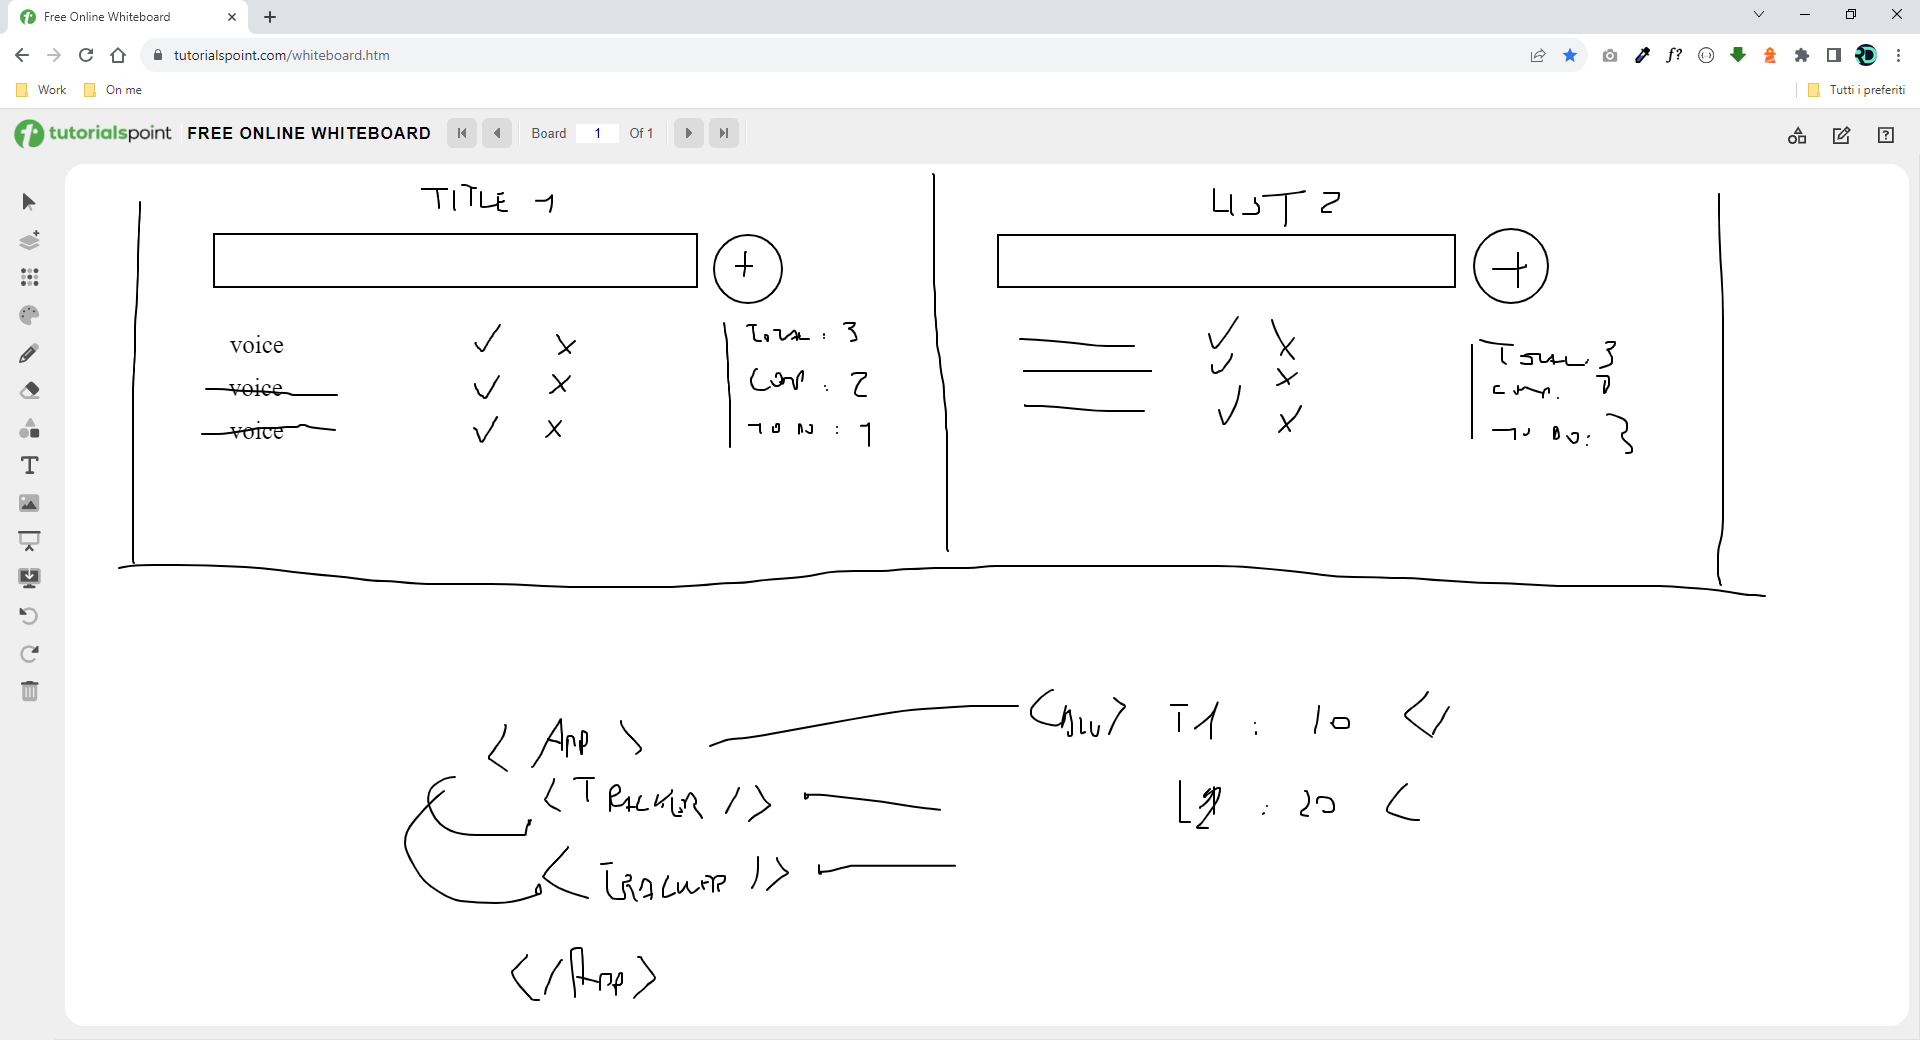 Free Online Whiteboard
tutorialspoint.com/whiteboard.htm
f?
Work
On me
Tutti i preferiti
tutorialspoint FREE ONLINE WHITEBOARD
Board 1 Of 1
TITLE 1
LIST 2
+
+
voice
voice
voice
TOTAL : 3
COMP : 2
TO DO : 1
TOTAL : 3
COMP. 0
TO DO : 3
<App>
<TRACKER />
<TRACKER />
</App>
<DIV> T1 : 10 </
L2 : 20 <